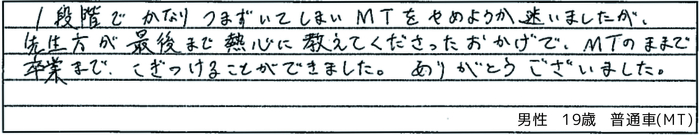 1段階でかなりつまずいてしまいMTをやめようか迷いましたが、
先生方が最後まで熱心に教えてくださったおかげで、MTのままで
卒業まで、こぎつけることができました。ありがとうございました。
男性 19歳 普通車(MT)